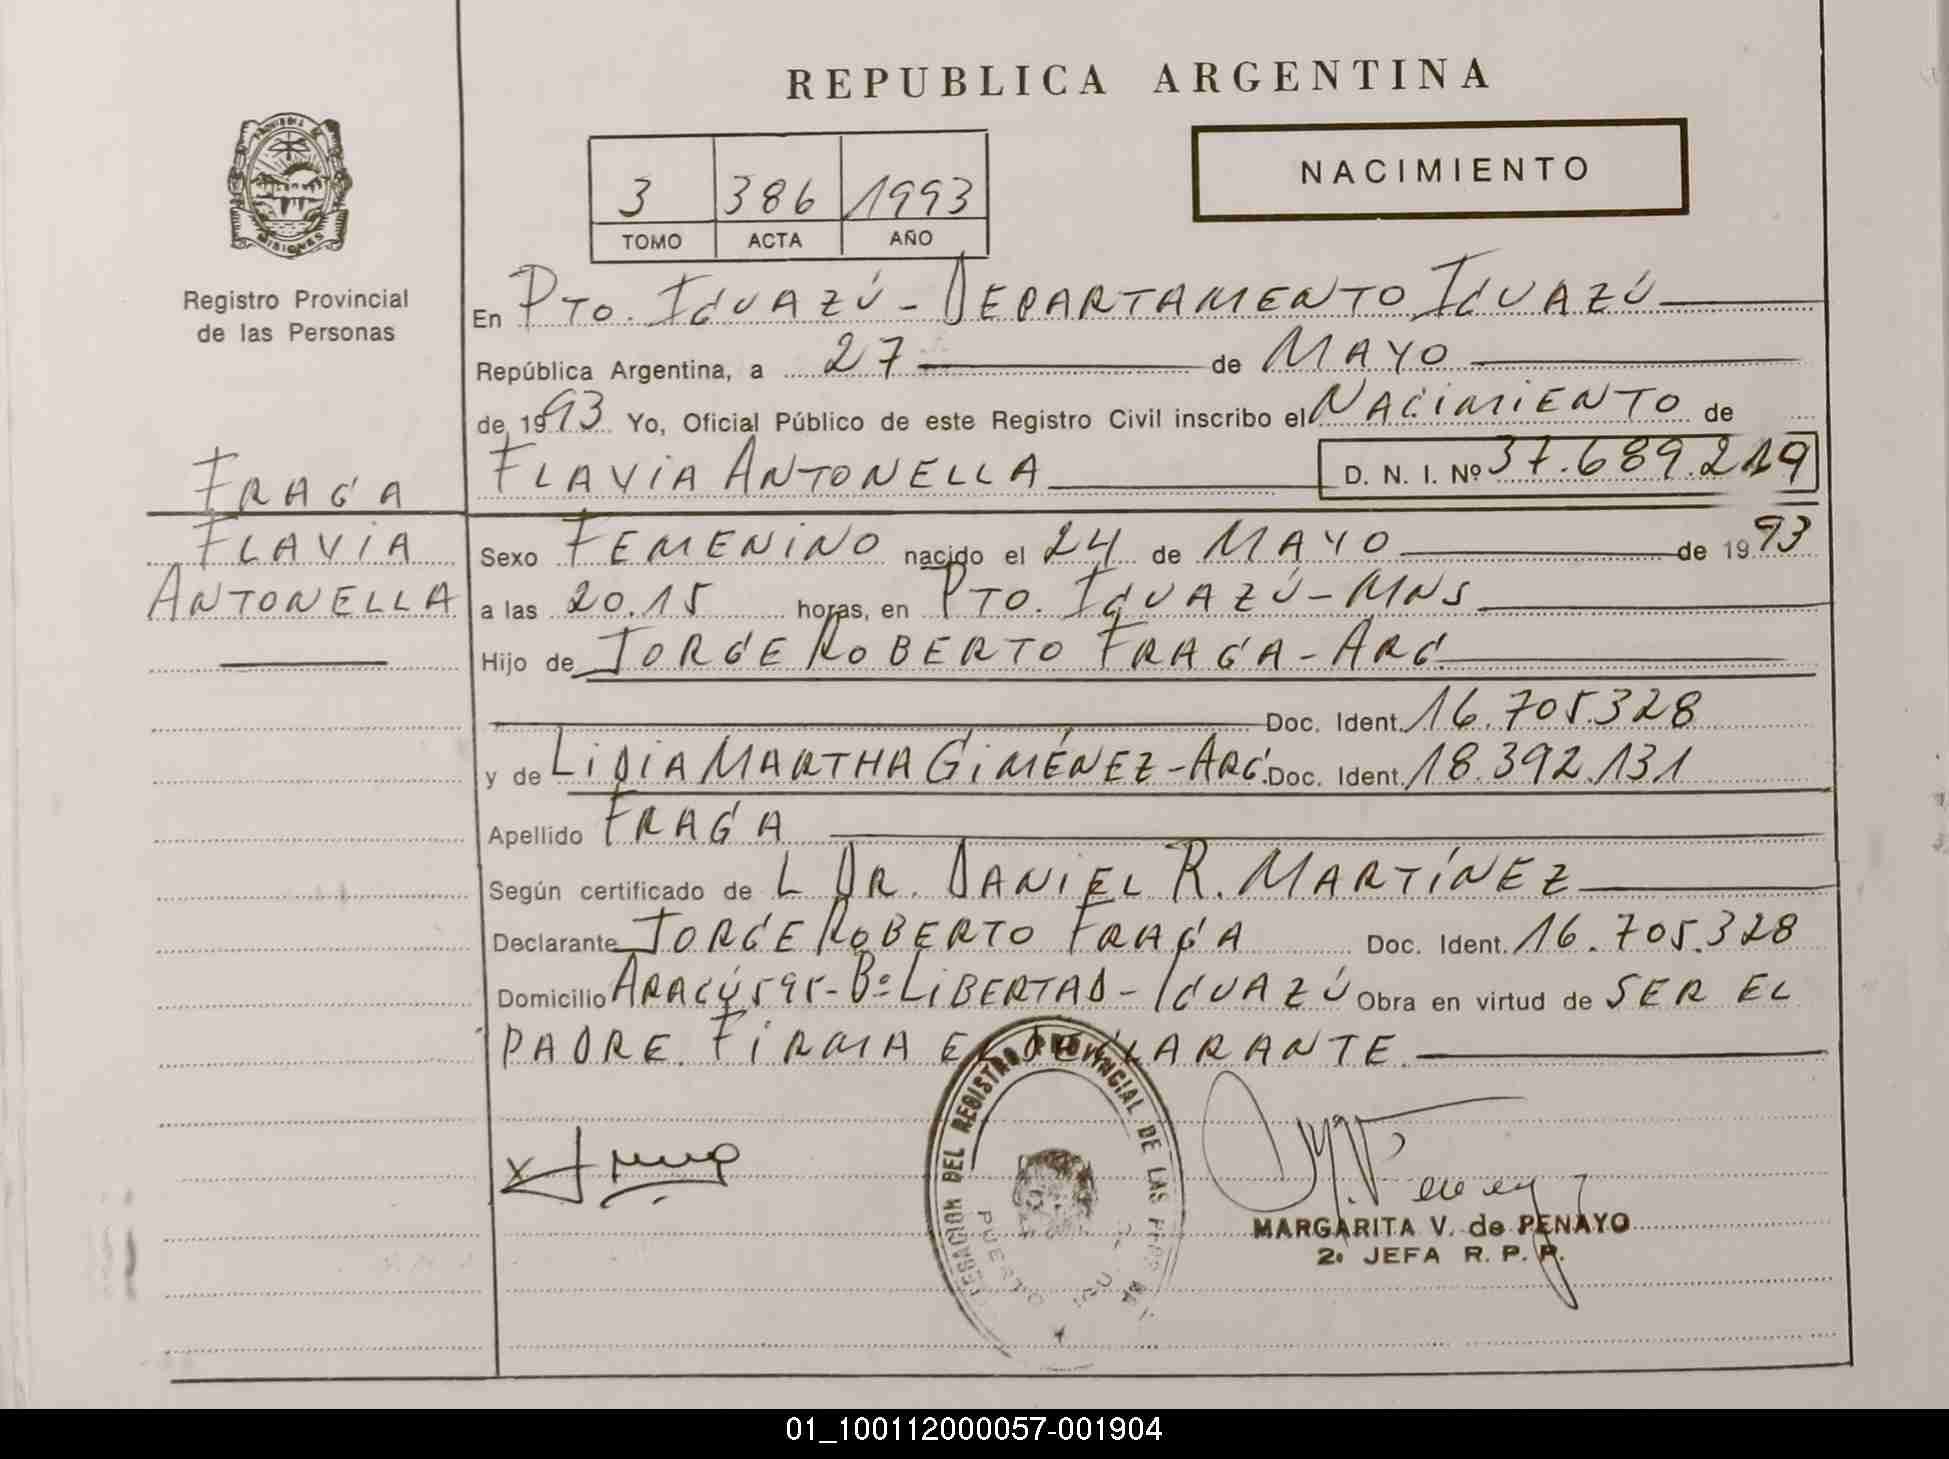 REPUBLICA ARGENTINA
PROVINCIA DE
MISIONES
Registro Provincial
de las Personas
NACIMIENTO
3 386 1993
TOMO ACTA AÑO
En PTO. IGUAZÚ - DEPARTAMENTO IGUAZÚ
República Argentina, a 27 de MAYO
de 1993 Yo, Oficial Público de este Registro Civil inscribo el NACIMIENTO de
FLAVIA ANTONELLA D. N. I. Nº 37.689.219
FRAGA
FLAVIA
ANTONELLA
Sexo FEMENINO nacido el 24 de MAYO de 1993
a las 20.15 horas, en PTO. IGUAZÚ - MNS
Hijo de JORGE ROBERTO FRAGA - ARG
Doc. Ident. 16.705.328
y de LIDIA MARTHA GIMÉNEZ - ARG. Doc. Ident. 18.392.131
Apellido FRAGA
Según certificado de L DR. DANIEL R. MARTÍNEZ
Declarante JORGE ROBERTO FRAGA Doc. Ident. 16.705.328
Domicilio ARAGÚ 595 - Bº LIBERTAD - IGUAZÚ Obra en virtud de SER EL
PADRE. FIRMA EL DECLARANTE.
DELEGACION DEL REGISTRO PROVINCIAL DE LAS
PUERTO
MARGARITA V. de PENAYO
2º JEFA R. P. P.
01_100112000057-001904